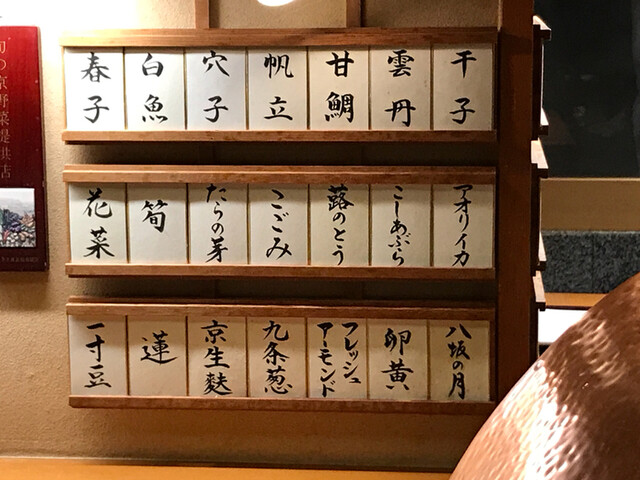 干子
雲丹
甘鯛
帆立
穴子
白魚
春子
アオリイカ
こしあぶら
蕗のとう
こごみ
たらの芽
筍
花菜
八坂の月
卵黄
フレッシュ
アーモンド
九条葱
京生麩
蓮
一寸豆
旬の京野菜提供店